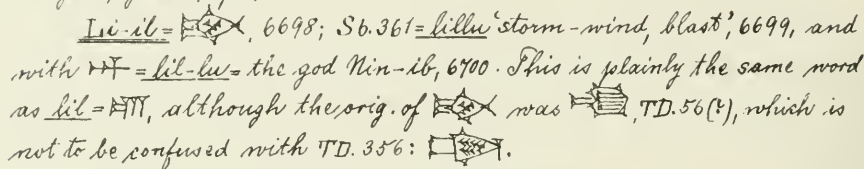 Li-il = , 6698; Sb. 361 = lillu 'storm-wind, blast', 6699, and
with 𒀭 = lil-lu = the god Nin-ib, 6700. This is plainly the same word
as lil = , although the orig. of was , TD. 56(?), which is
not to be confused with TD. 356: .